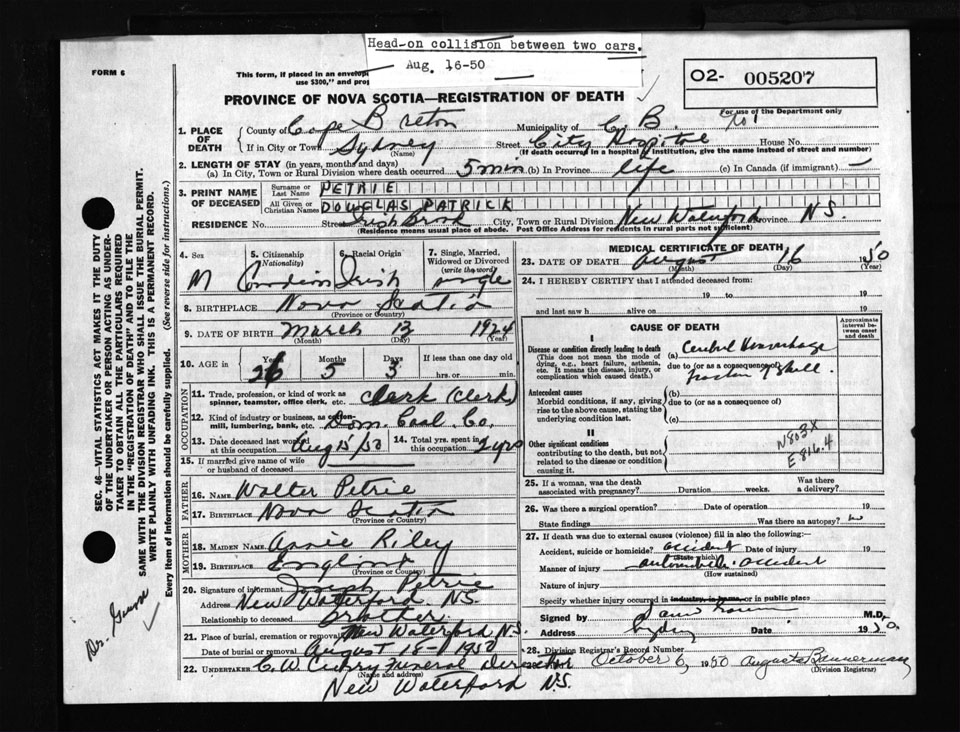 Head-on collision between two cars.
Aug. 16-50
FORM 6
This form, if placed in an envelope
use $300," and
O2- 005207
PROVINCE OF NOVA SCOTIA—REGISTRATION OF DEATH
For use of the Department only
1. PLACE OF DEATH
County of Cape Breton Municipality of C. B.
If in City or Town Sydney (Name) Street City Hospital House No.
(If death occurred in a hospital or institution, give the name instead of street and number)
2. LENGTH OF STAY (in years, months and days)
(a) In City, Town or Rural Division where death occurred 5 min (b) In Province life (c) In Canada (if immigrant) —
3. PRINT NAME OF DECEASED
Surname or Last Name PETRIE
All Given or Christian Names DOUGLAS PATRICK
RESIDENCE No. Street Irish Brook City, Town or Rural Division New Waterford Province N.S.
(Residence means usual place of abode. Post Office Address for residents in rural parts not sufficient)
4. Sex M
5. Citizenship (Nationality) Canadian
6. Racial Origin Irish
7. Single, Married, Widowed or Divorced (write the word) single
8. BIRTHPLACE Nova Scotia
(Province or Country)
9. DATE OF BIRTH March 13 1924
(Month) (Day) (Year)
10. AGE in Years Months Days If less than one day
26 5 3 hrs. or min.
OCCUPATION
11. Trade, profession, or kind of work as spinner, teamster, office clerk, etc. clerk (clerk)
12. Kind of industry or business, as cotton-mill, lumbering, bank, etc. Dom. Coal Co.
13. Date deceased last worked at this occupation Aug 15/50 14. Total yrs. spent in this occupation 2 yrs
15. If married give name of wife or husband of deceased
FATHER
16. NAME Walter Petrie
17. BIRTHPLACE Nova Scotia
(Province or Country)
MOTHER
18. MAIDEN NAME Annie Riley
19. BIRTHPLACE England
(Province or Country)
20. Signature of informant Joseph Petrie
Address New Waterford N.S.
Relationship to deceased brother
21. Place of burial, cremation or removal New Waterford N.S.
Date of burial or removal August 18- 1950
22. UNDERTAKER C. W. Curry Funeral Director
(Name and address)
New Waterford N.S.
MEDICAL CERTIFICATE OF DEATH
23. DATE OF DEATH August 16 1950
(Month) (Day) (Year)
24. I HEREBY CERTIFY that I attended deceased from:
19 to 19
and last saw h alive on 19
CAUSE OF DEATH
Approximate interval between onset and death
I
Disease or condition directly leading to death
(This does not mean the mode of dying, e.g., heart failure, asthenia, etc. It means the disease, injury, or complication which caused death.)
(a) Cerebral Hemorrhage
due to (or as a consequence of)
fracture of skull.
Antecedent causes
Morbid conditions, if any, giving rise to the above cause, stating the underlying condition last.
(b)
due to (or as a consequence of)
(c)
II
Other significant conditions
contributing to the death, but not related to the disease or condition causing it.
N803X
E816.4
25. If a woman, was the death associated with pregnancy? Duration weeks. Was there a delivery?
26. Was there a surgical operation? Date of operation 19
State findings Was there an autopsy? no
27. If death was due to external causes (violence) fill in also the following:
Accident, suicide or homicide? accident Date of injury 19
(State which)
Manner of injury automobile accident
(How sustained)
Nature of injury
Specify whether injury occurred in industry, in home, or in public place
Signed by M.D.
Address Sydney Date 1950
28. Division Registrar's Record Number
October 6, 1950 Augusta Bannerman
(Division Registrar)
SEC. 46—VITAL STATISTICS ACT MAKES IT THE DUTY
OF THE UNDERTAKER OR PERSON ACTING AS UNDER-
TAKER TO OBTAIN ALL THE PARTICULARS REQUIRED
IN THE "REGISTRATION OF DEATH" AND TO FILE THE
SAME WITH THE DIVISION REGISTRAR WHO SHALL ISSUE THE BURIAL PERMIT.
WRITE PLAINLY WITH UNFADING INK. THIS IS A PERMANENT RECORD.
Every item of information should be carefully supplied. (See reverse side for instructions.)